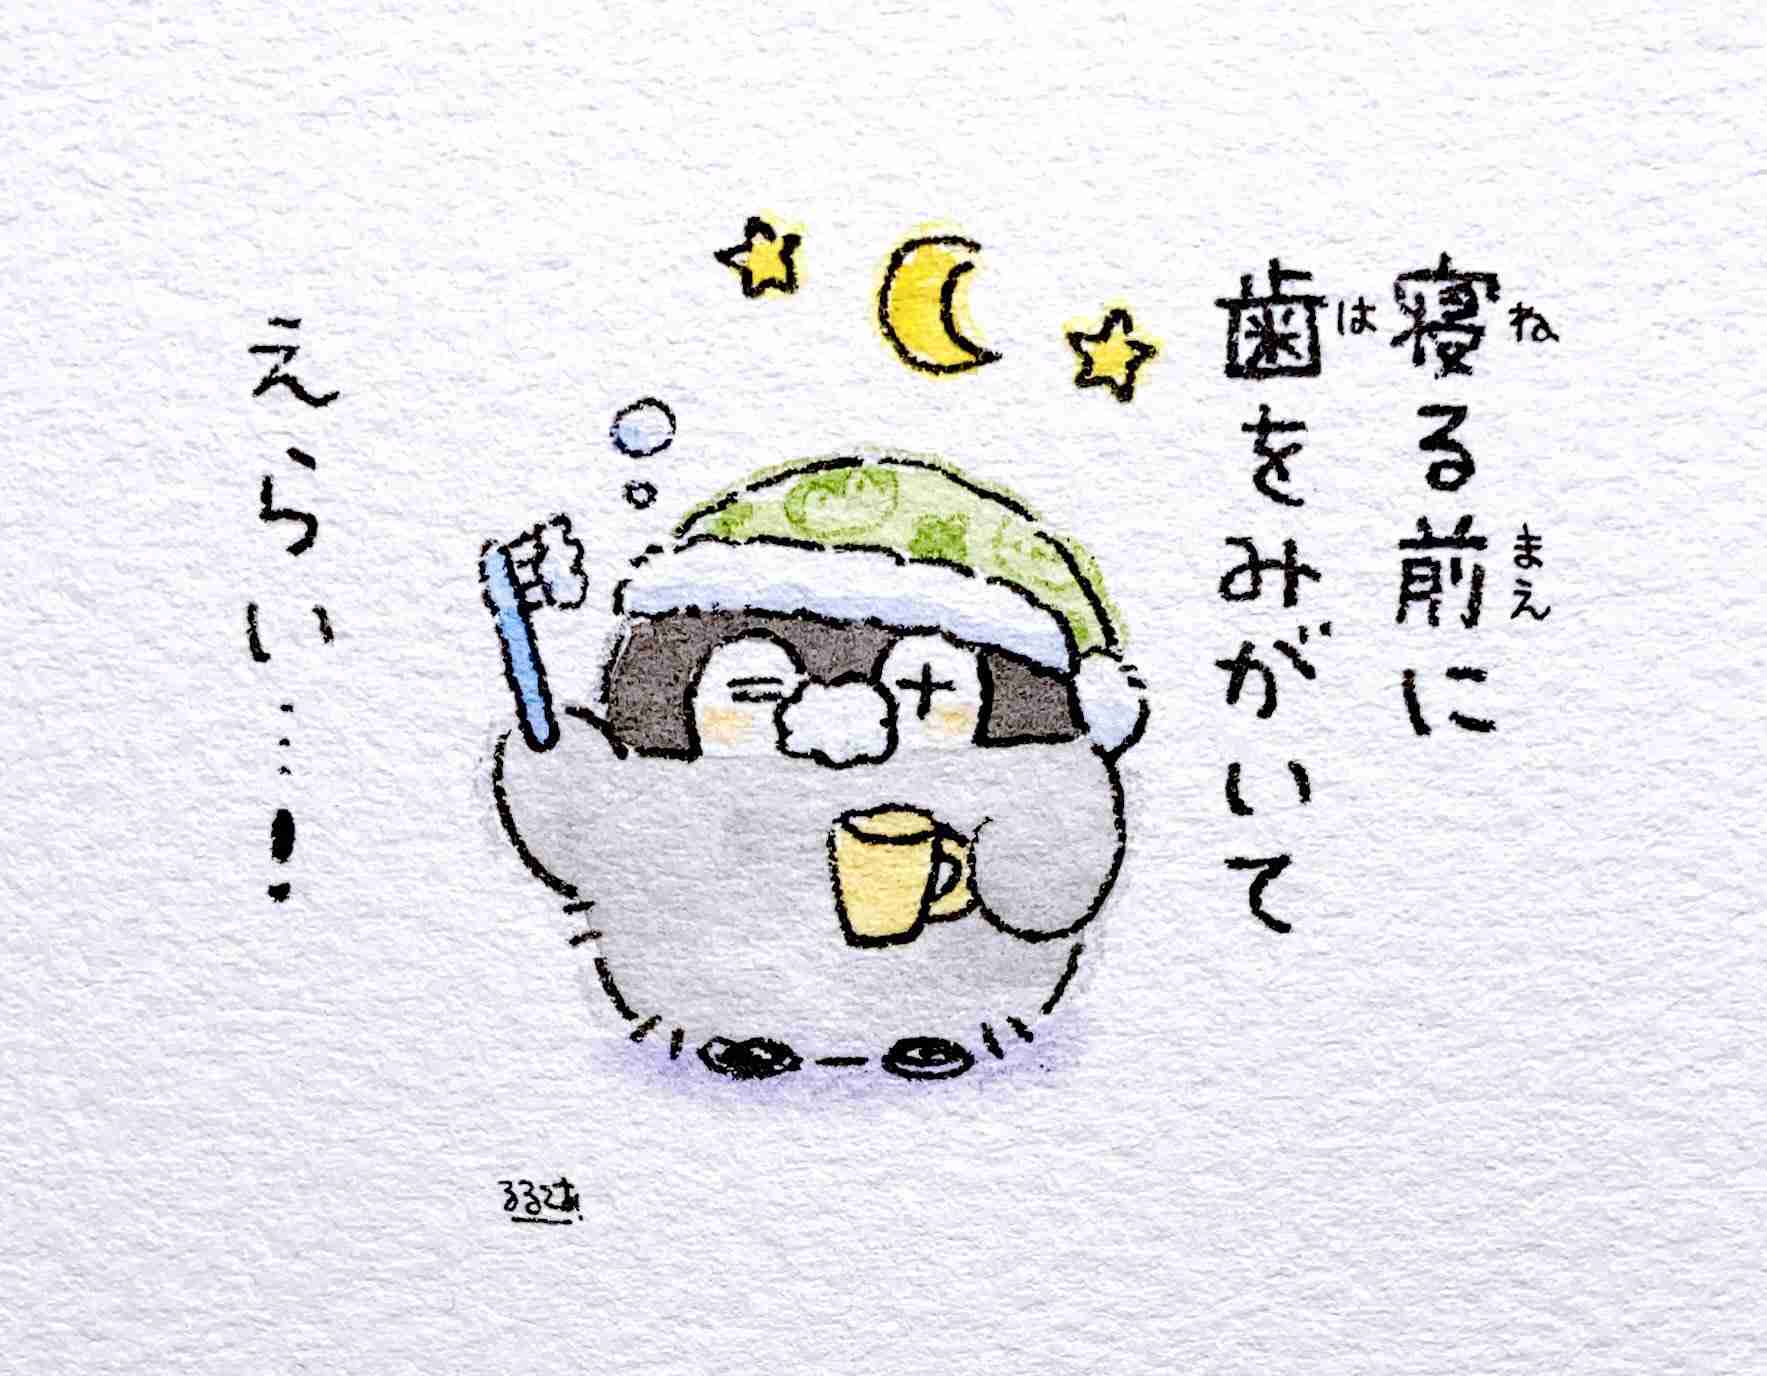 寝る前に
歯をみがいて
えらい…!
るるてあ